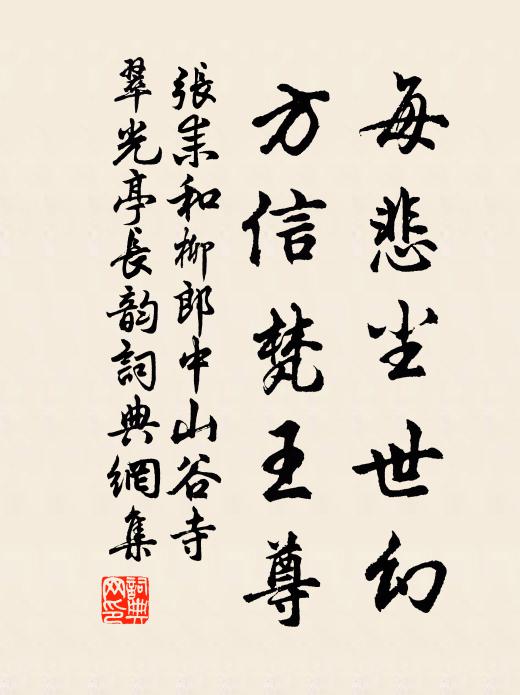 每悲尘世幻
方信梵王尊
張耒和柳郎中山谷寺
翠光亭長韵詞典網集
詞典網印